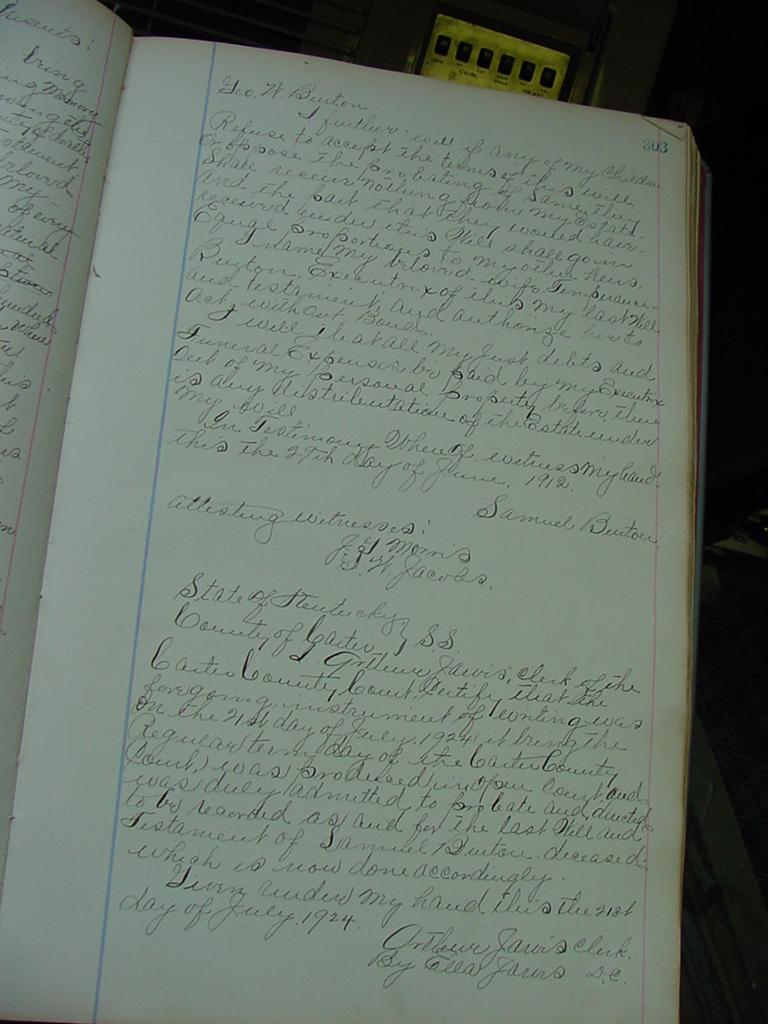 303
Geo. W. Burton
I further will if any of my children
Refuse to accept the terms of this will,
or oppose the probating of same, they
Shall receive nothing from my Estate.
and the part that they would have
received under this Will shall go in
Equal proportions to my other heirs.
I name my beloved wife Temperance
Burton, Executrix of this my last Will
and testament, and authorize her to
act, without Bond.
I will that all my just debts and
Funeral Expenses be paid by my Executrix
Out of my personal property before there
is any distributation of the Estate under
my will
In Testimony Whereof witness my hand
this the 29th day of June, 1912.
Samuel Burton,
attesting witnesses:
Morris
W. Jacobs.
State of Kentucky } SS.
County of Carter, }
I, Arthur Jarvis, Clerk of the
Carter County Court, Certify that the
foregoing instrument of writing was
on the 21st day of July, 1924, it being the
Regular term day of the Carter County
Court, was produced in open Court and
was duly admitted to probate and directed
to be recorded as and for the last Will and
Testament of Samuel Burton deceased.
which is now done accordingly.
Given under my hand this the 21st
day of July, 1924.
Arthur Jarvis Clerk.
By Ella Jarvis D.C.